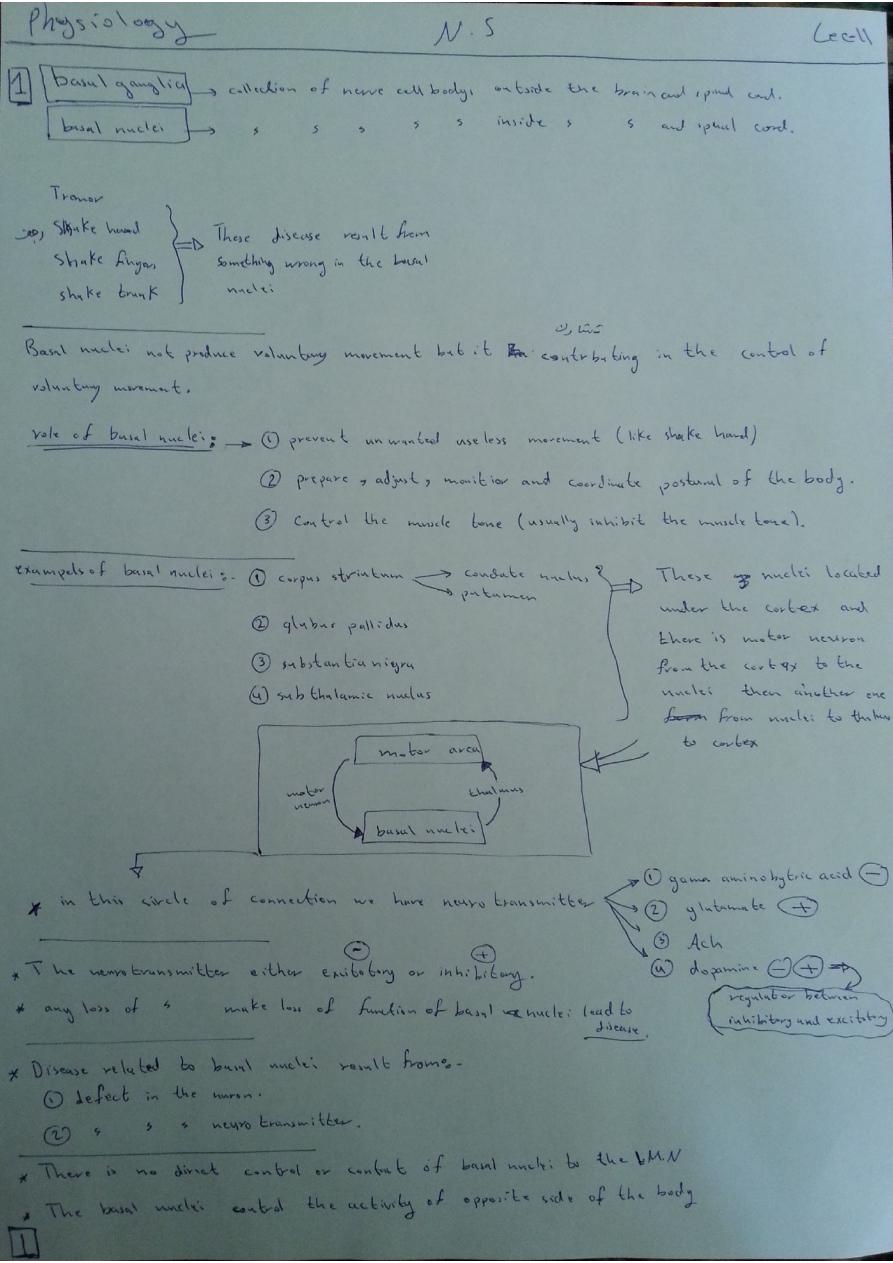 Physiology N.S Lec-11
1 basal ganglia → collection of nerve cell bodys outside the brain and spinal cord.
basal nuclei → s s s s s inside s s and spinal cord.
Tremor
shake hand
shake fingers
shake trunk
These disease result from
something wrong in the basal
nuclei
تشارك
Basal nuclei not produce voluntary movement but it contrbuting in the control of
voluntary movement.
role of basal nuclei: → ① prevent unwanted useless movement (like shake hand)
② prepare, adjust, monitior and coordinate postural of the body.
③ control the muscle tone (usually inhibit the muscle tone).
exampels of basal nuclei:- ① corpus striatum → caudate nuclus
→ putamen
② globus pallidus
③ substantia nigra
④ subthalamic nuclus
These nuclei located
under the cortex and
there is motor neuron
from the cortex to the
nuclei then another one
from nuclei to thalamus
to cortex
motor area
motor neuron
thalmus
basal nuclei
* in this circle of connection we have neurotransmitter
① gama aminobytric acid ⊖
② glutamate ⊕
③ Ach
④ dopamine ⊖ ⊕ ⇒
regulator between
inhibitory and excitotory
⊖ ⊕
* The neurotransmitter either exitotory or inhibitory.
* any loss of s make loss of function of basal nuclei lead to
disease.
* Disease related to basal nuclei result from:-
① defect in the nuron.
② s s s neurotransmitter.
* There is no direct control or contact of basal nuclei to the LMN
* The basal nuclei control the activity of opposite side of the body
1